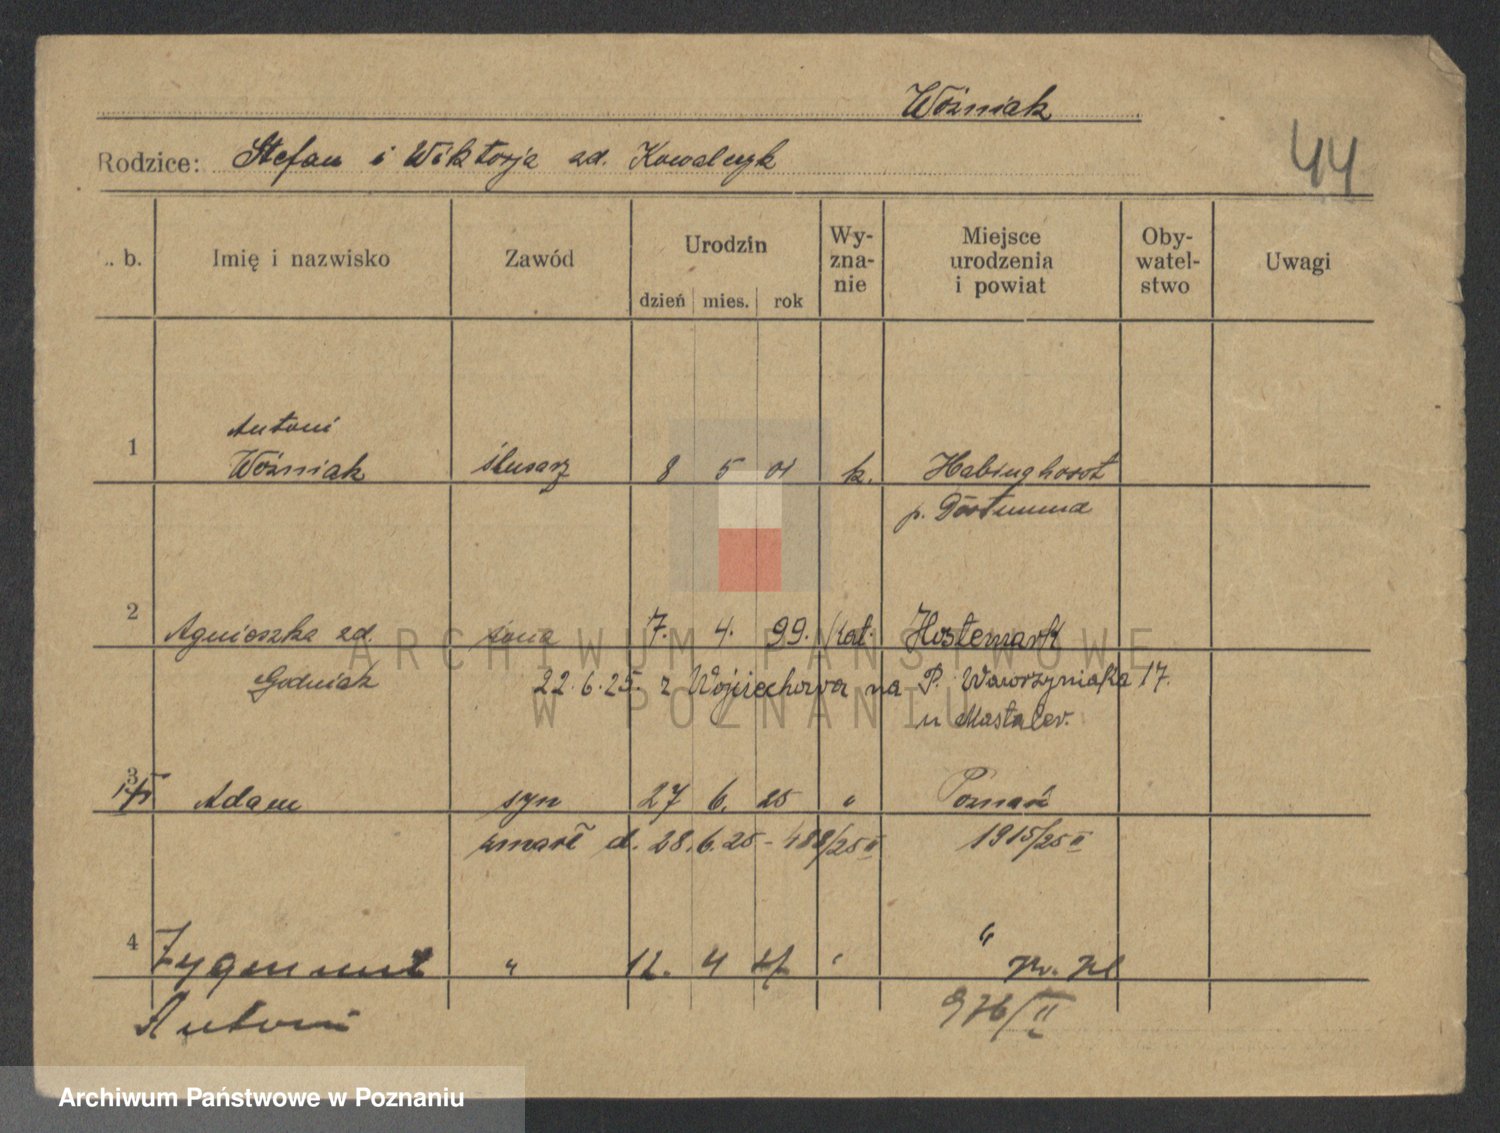 Woźniak
Rodzice: Stefan i Wiktorja zd. Kowalczyk
44
. b. Imię i nazwisko Zawód Urodzin dzień mies. rok Wy-zna-nie Miejsce urodzenia i powiat Oby-watel-stwo Uwagi
Antoni
1 Woźniak ślusarz 8 5 01 k. Habinghorst
p. Dortmund
2 Agnieszka zd. żona 7. 4. 99. kat. Hostemark
Godniak 22.6.25. z Wojciechowa na P. Wawrzyniaka 17.
u Mastaler.
3 Adam syn 27 6. 25 " Poznań
zmarł d. 28.6.25 - 488/25 II 1915/25 II
4 Zygmunt " 12. 4 " "
Antoni 976/II
ARCHIWUM PAŃSTWOWE
W POZNANIU
Archiwum Państwowe w Poznaniu